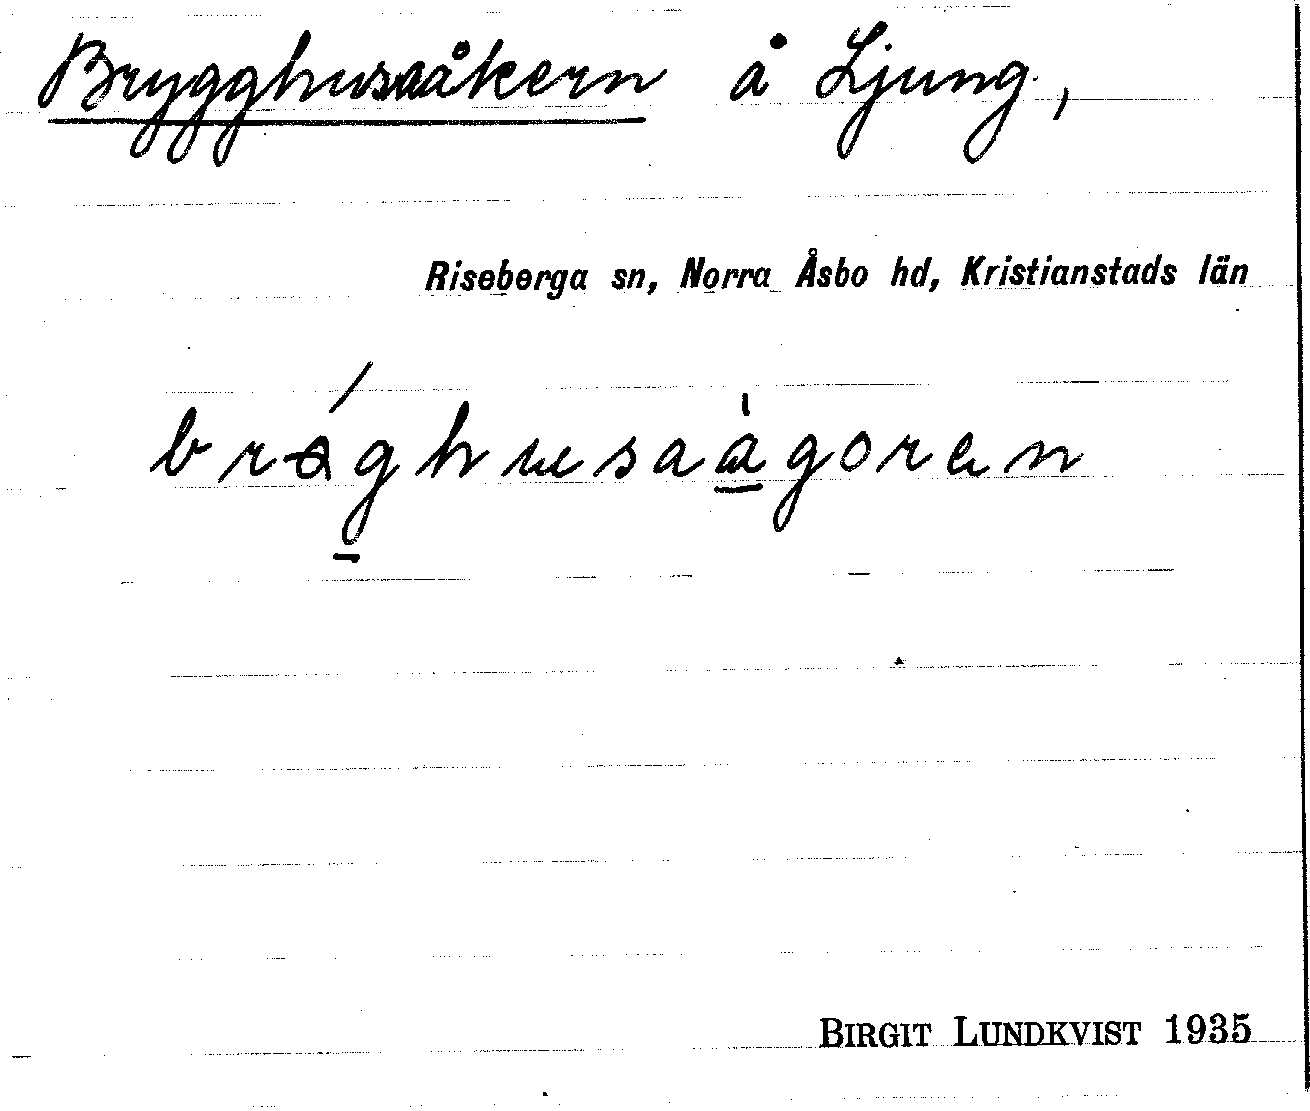 Brygghusaåkern å Ljung,
Riseberga sn, Norra Åsbo hd, Kristianstads län
brøghusaågoren
BIRGIT LUNDKVIST 1935